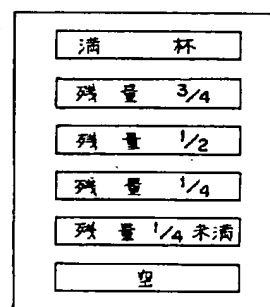 満 杯
残 量 3/4
残 量 1/2
残 量 1/4
残 量 1/4 未満
空